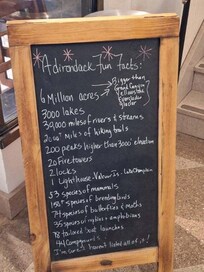 Adirondack fun facts:
6 Million acres → Bigger than
Grand Canyon
Yellowstone
Everglades
Glacier
3000 lakes
39,000 miles of rivers & streams
2000+ miles of hiking trails
200 peaks higher than 3000 elevation
20 Firetowers
2 locks
1 Lighthouse, Valcour is., Lake Champlain
53 species of mammals
species of breeding birds
74 species of butterflies & moths
35 species of reptiles & amphibians
78 tailored boat launches
44 Campgrounds
I'm sure I haven't listed all of it!